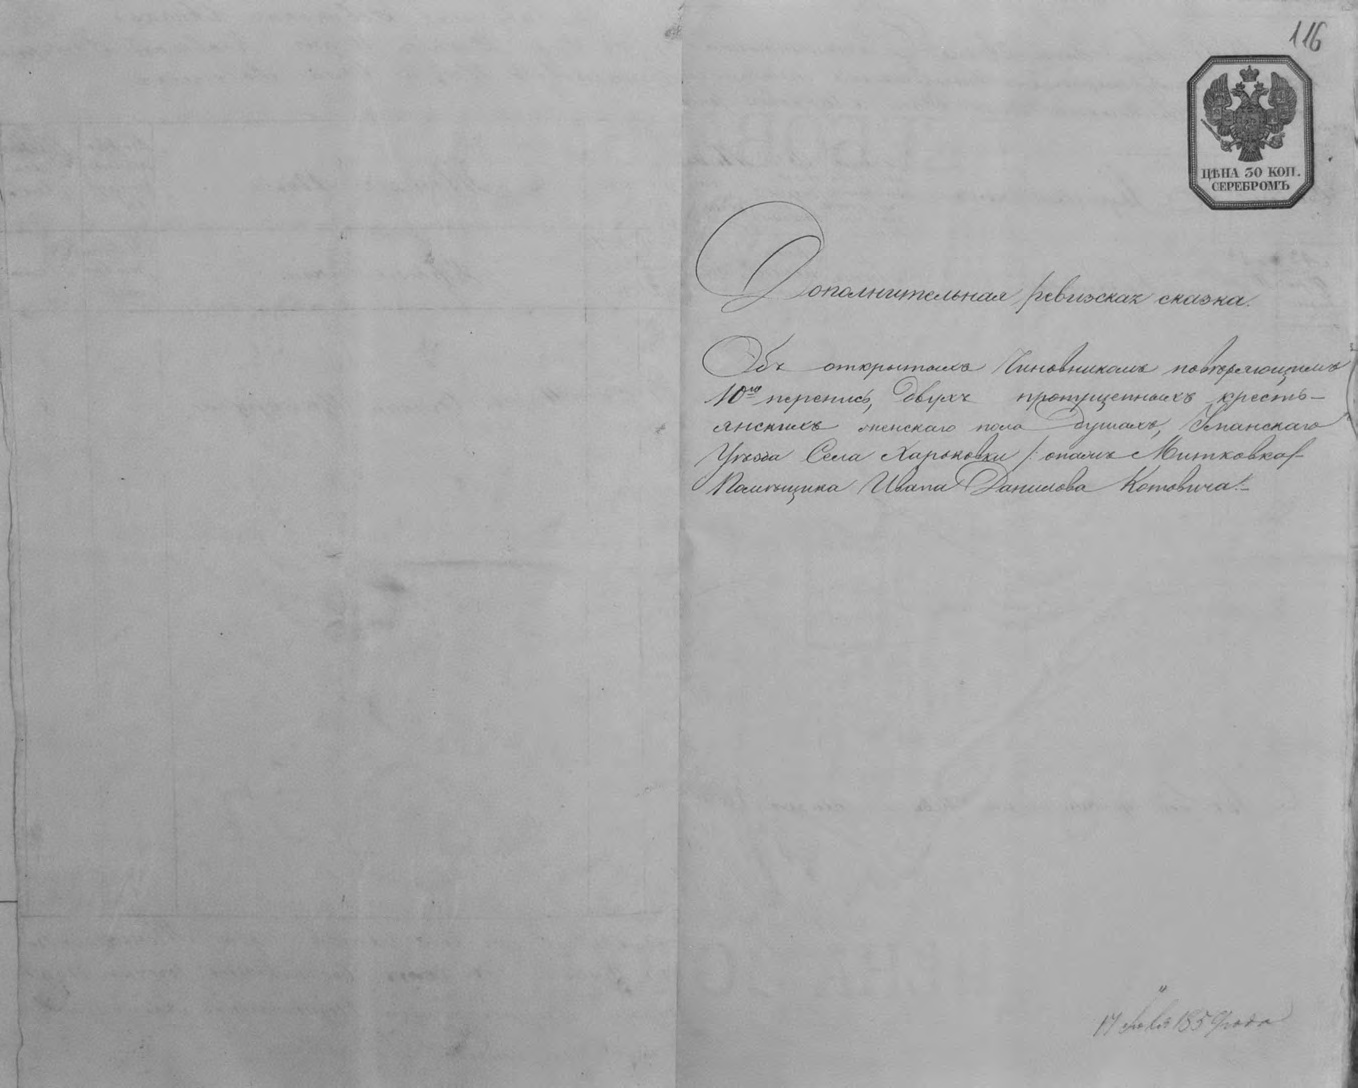 116
ЦѢНА 30 КОП.
СЕРЕБРОМЪ
Дополнительная ревизская сказка.
Объ открытыхъ Чиновникомъ повѣряющимъ
10ую перепись, двухъ пропущенныхъ кресть-
янскихъ женскаго пола душахъ, Уманскаго
Уѣзда Села Харьковки /: онамъ Митковка :/
Помѣщика Ивана Данилова Котовича.
17 1859 года